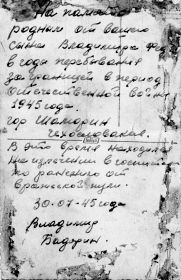 На память
родным от вашего
сына Владимира
в годы пребывания
за границей в период
Отечественной войны
1945 года.
гор. Шаморин
Чехословакия.
В это время находился
на излечении в госпитале
по ранению от
вражеской пули.
30.07-45 года
Владимир